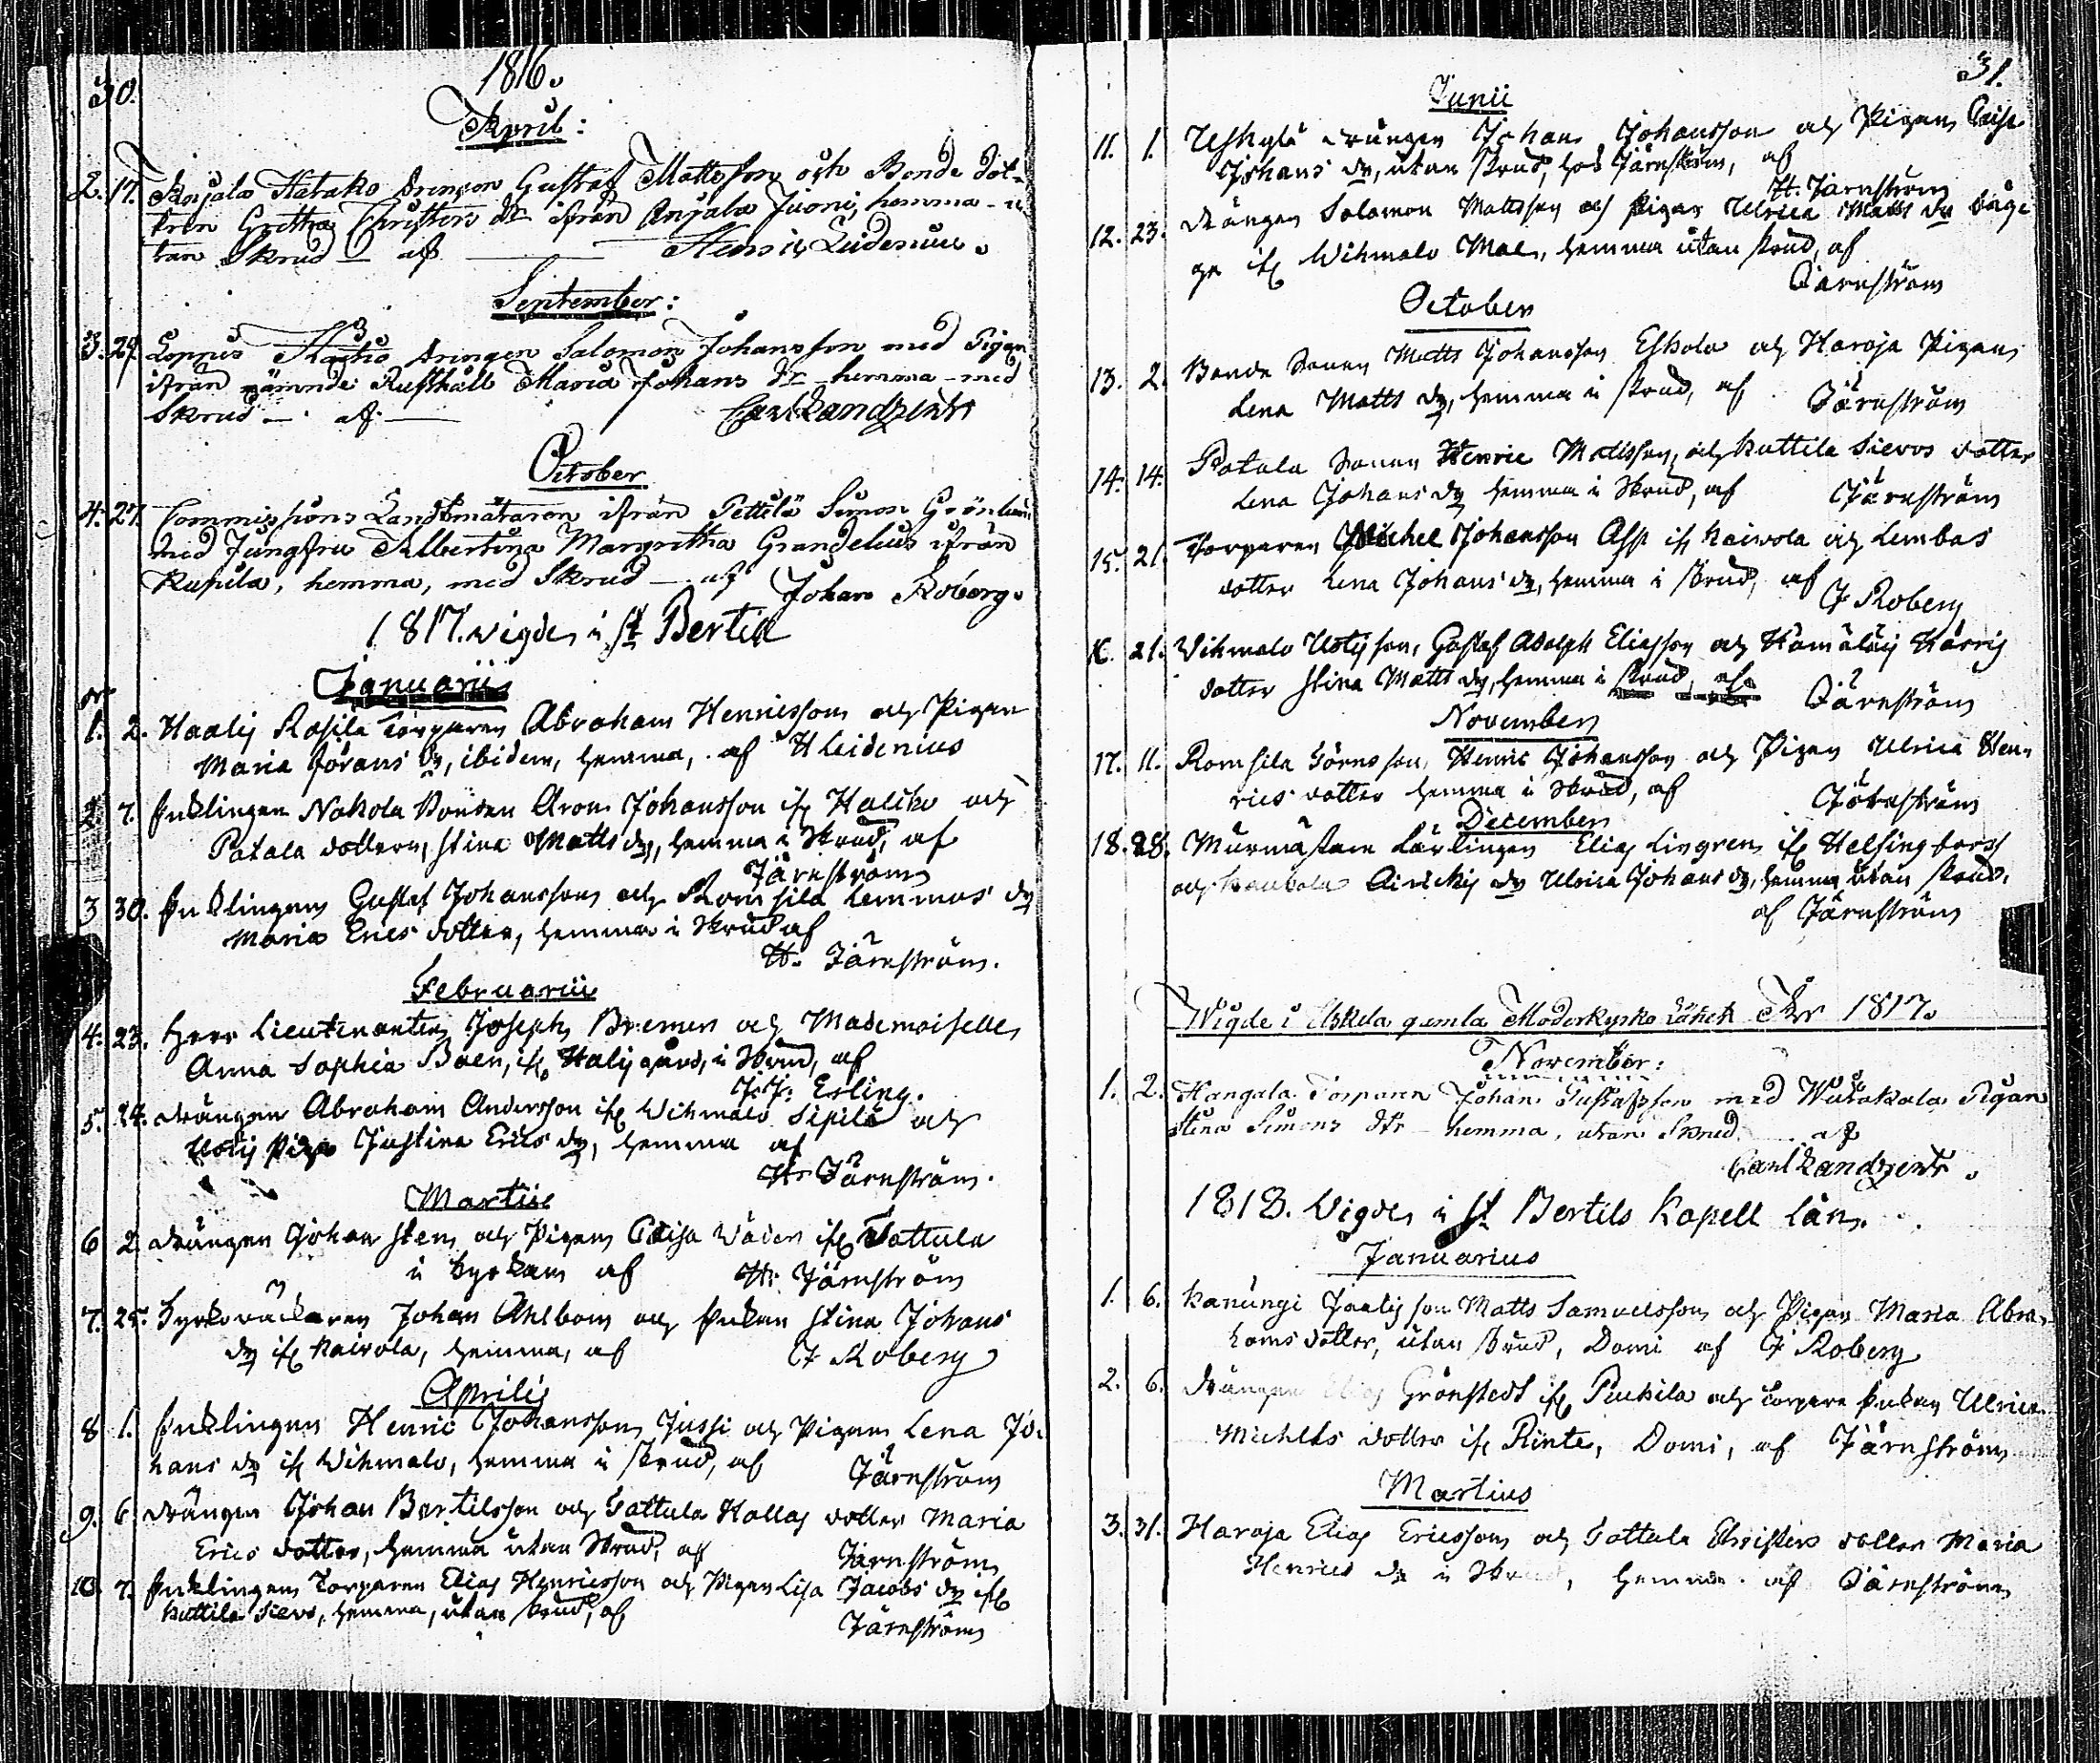 30.
1816.
April:
2. 17. Anjala Hatako drengen Gustaf Mattsson och Bonde dot-
tren Gretha Christers dr ifrån Anjala Juoni, hemma - u
tan Skrud — af — Henric Lidenius.
September:
3. 29. Loppis drengen Salomon Johansson med Pigan
ifrån nämnde Rusthåll Maria Johans dr - hemma - med
Skrud — af — Carl Landzenr
October
4. 27. Commissions Landtmätaren ifrån Pettilä Simon Grönlund
med Jungfru Albertina Margretha Grandelius ifrån
Kupila, hemma, med Skrud — af Johan Roberg.
1817. vigde i St Bertils
Januarius
1. 2. Haalij Rosila Torparen Abraham Henricsson och Pigan
Maria Jörans dr, ibidem, hemma, af H Lidenius
2. 7. Enklingen Nokola Bonden Aron Johansson ifr Haliko och
Potola dottern, Stina Matts dr, hemma i Skrud, af
Järnström
3 30. Enklingen Gustaf Johansson och Romsila Lemmos dr
Maria Erics dotter, hemma i Skrud af
H. Järnström.
Februarii
4. 23. Herr Lieutenanten Joseph Bremer och Mademoiselle
Anna Sophia Boen, ifr Halij gård, i Skrud, af
J. J. Esling.
5. 24. drängen Abraham Andersson ifr Wihmalo Sipilä och
Uotij Piga Justina Erics dr, hemma af
H. Järnström.
Martii
6 2 drängen Johan Sten och Pigan Caisa Wäder ifr Tattula
i kyrkan af H. Järnström
7. 25. Kyrkoväktaren Johan Ahlbom och Enkan Stina Johans
dr ifr Kaivola, hemma, af J Roberg
Aprilis
8 1. Enklingen Henric Johansson Jussi och Pigan Lena Jo-
hans dr ifr Wihmalo, hemma i skrud, af Järnström
9. 6 drängen Johan Bertilsson och Tattula Hollas dotter Maria
Erics dotter, hemma utan Skrud, af Järnström
10. 7. Enklingen Torparen Elias Henricsson och Pigan Lisa Jacobs dr ifr
Kuttila Sievo, hemma, utan skrud, af Järnström
31.
Junii
11. 1. Uskylä drängen Johan Johansson och Pigan Caisa
Johans dr, utan skrud, hos Järnström, af
H. Järnström
12. 23. drängen Salomon Mattsson och Pigan Ulrica Matts dr båg
ge ifr Wihmalo Mal, hemma utan skrud, af
Järnström
October
13. 2. Bonde Sonen Matts Johansson Eskola och Haroja Pigan
Lena Matts dr, hemma i skrud, af Järnström
14. 14. Potola Sonen Henric Mattsson, och Kuttila Sievos dotter
Lena Johans dr hemma i Skrud, af Järnström
15. 21. Torparen Michel Johansson Asp ifr Kaivola och Lembos
dotter Lena Johans dr, hemma i skrud, af
J Roberg
16. 21. Wihmalo Uotij son, Gustaf Adolph Eliasson och Hämäläij Härrij
dotter Stina Matts dr, hemma i skrud, af Järnström
November
17. 11. Romsila Sörns son, Henric Johansson och Pigan Ulrica Hen-
rics dotter hemma i Skrud, af Järnström
December
18. 28. Murmästare Lärlingen Elias Livgren ifr Helsingfors
och Airickij dr Ulrica Johans dr, hemma utan skrud,
af Järnström
Wigde i Uskela gamla Moderkyrko Länet År 1817.
November:
1. 2. Hangala Torparen Johan Gustafsson med Pigan
Stina Simons dtr hemma, utan Skrud. af
Carl Landzenr.
1818. Vigde i St Bertils Kapell Län.
Januarius
1. 6. Kanungi Jaalij son Matts Samuelsson och Pigan Maria Abra-
hams dotter, utan skrud, Domi af J Roberg
2. 6. drängen Elias Grönstedt ifr Puckila och Torpare Enkan Ulrica
Michels dotter ifr Rinte, Domi, af Järnström
Martius
3. 31. Haroja Elias Ericsson och Tattula Christers dotter Maria
Henrics dr i Skrud, hemma af Järnström